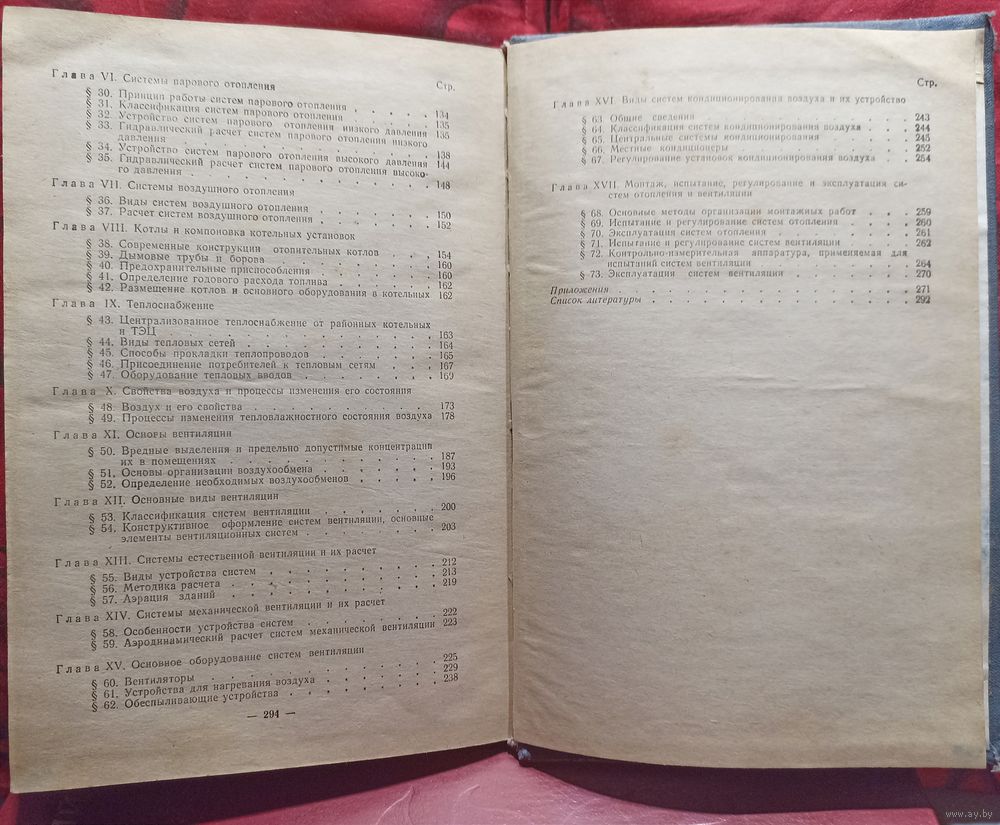 Глава VI. Системы парового отопления
Стр.
§ 30. Принцип работы систем парового отопления . . . . . 134
§ 31. Классификация систем парового отопления . . . . . 135
§ 32. Устройство систем парового отопления низкого давления 135
§ 33. Гидравлический расчет систем парового отопления низкого
давления . . . . . . . . . . 138
§ 34. Устройство систем парового отопления высокого давления 144
§ 35. Гидравлический расчет систем парового отопления высоко-
го давления . . . . . . . . . . 148
Глава VII. Системы воздушного отопления
§ 36. Виды систем воздушного отопления . . . . . . 150
§ 37. Расчет систем воздушного отопления . . . . . . 152
Глава VIII. Котлы и компоновка котельных установок
§ 38. Современные конструкции отопительных котлов . . . 154
§ 39. Дымовые трубы и борова . . . . . . . . 160
§ 40. Предохранительные приспособления . . . . . . 160
§ 41. Определение годового расхода топлива . . . . . 162
§ 42. Размещение котлов и основного оборудования в котельных 162
Глава IX. Теплоснабжение
§ 43. Централизованное теплоснабжение от районных котельных
и ТЭЦ . . . . . . . . . . . 163
§ 44. Виды тепловых сетей . . . . . . . . . 164
§ 45. Способы прокладки теплопроводов . . . . . . 165
§ 46. Присоединение потребителей к тепловым сетям . . . 167
§ 47. Оборудование тепловых вводов . . . . . . . 169
Глава X. Свойства воздуха и процессы изменения его состояния
§ 48. Воздух и его свойства . . . . . . . . . 173
§ 49. Процессы изменения тепловлажностного состояния воздуха 178
Глава XI. Основы вентиляции
§ 50. Вредные выделения и предельно допустимые концентрации
их в помещениях . . . . . . . . . 187
§ 51. Основы организации воздухообмена . . . . . . 193
§ 52. Определение необходимых воздухообменов . . . . . 196
Глава XII. Основные виды вентиляции
§ 53. Классификация систем вентиляции . . . . . . 200
§ 54. Конструктивное оформление систем вентиляции, основные
элементы вентиляционных систем . . . . . . 203
Глава XIII. Системы естественной вентиляции и их расчет
§ 55. Виды устройства систем . . . . . . . . 212
§ 56. Методика расчета . . . . . . . . . 213
§ 57. Аэрация зданий . . . . . . . . . 219
Глава XIV. Системы механической вентиляции и их расчет
§ 58. Особенности устройства систем . . . . . . . 222
§ 59. Аэродинамический расчет систем механической вентиляции 223
Глава XV. Основное оборудование систем вентиляции
§ 60. Вентиляторы . . . . . . . . . . 225
§ 61. Устройства для нагревания воздуха . . . . . . 229
§ 62. Обеспыливающие устройства . . . . . . . 238
— 294 —
Стр.
Глава XVI. Виды систем кондиционирования воздуха и их устройство
§ 63. Общие сведения . . . . . . . . . 243
§ 64. Классификация систем кондиционирования воздуха . . . 244
§ 65. Центральные системы кондиционирования . . . . . 245
§ 66. Местные кондиционеры . . . . . . . . 252
§ 67. Регулирование установок кондиционирования воздуха . . 254
Глава XVII. Монтаж, испытание, регулирование и эксплуатация си-
стем отопления и вентиляции
§ 68. Основные методы организации монтажных работ . . . 259
§ 69. Испытание и регулирование систем отопления . . . . 260
§ 70. Эксплуатация систем отопления . . . . . . . 261
§ 71. Испытание и регулирование систем вентиляции . . . 262
§ 72. Контрольно-измерительная аппаратура, применяемая для
испытаний систем вентиляции . . . . . . . 264
§ 73. Эксплуатация систем вентиляции . . . . . . 270
Приложения . . . . . . . . . . . 271
Список литературы . . . . . . . . . . 292
www.ay.by